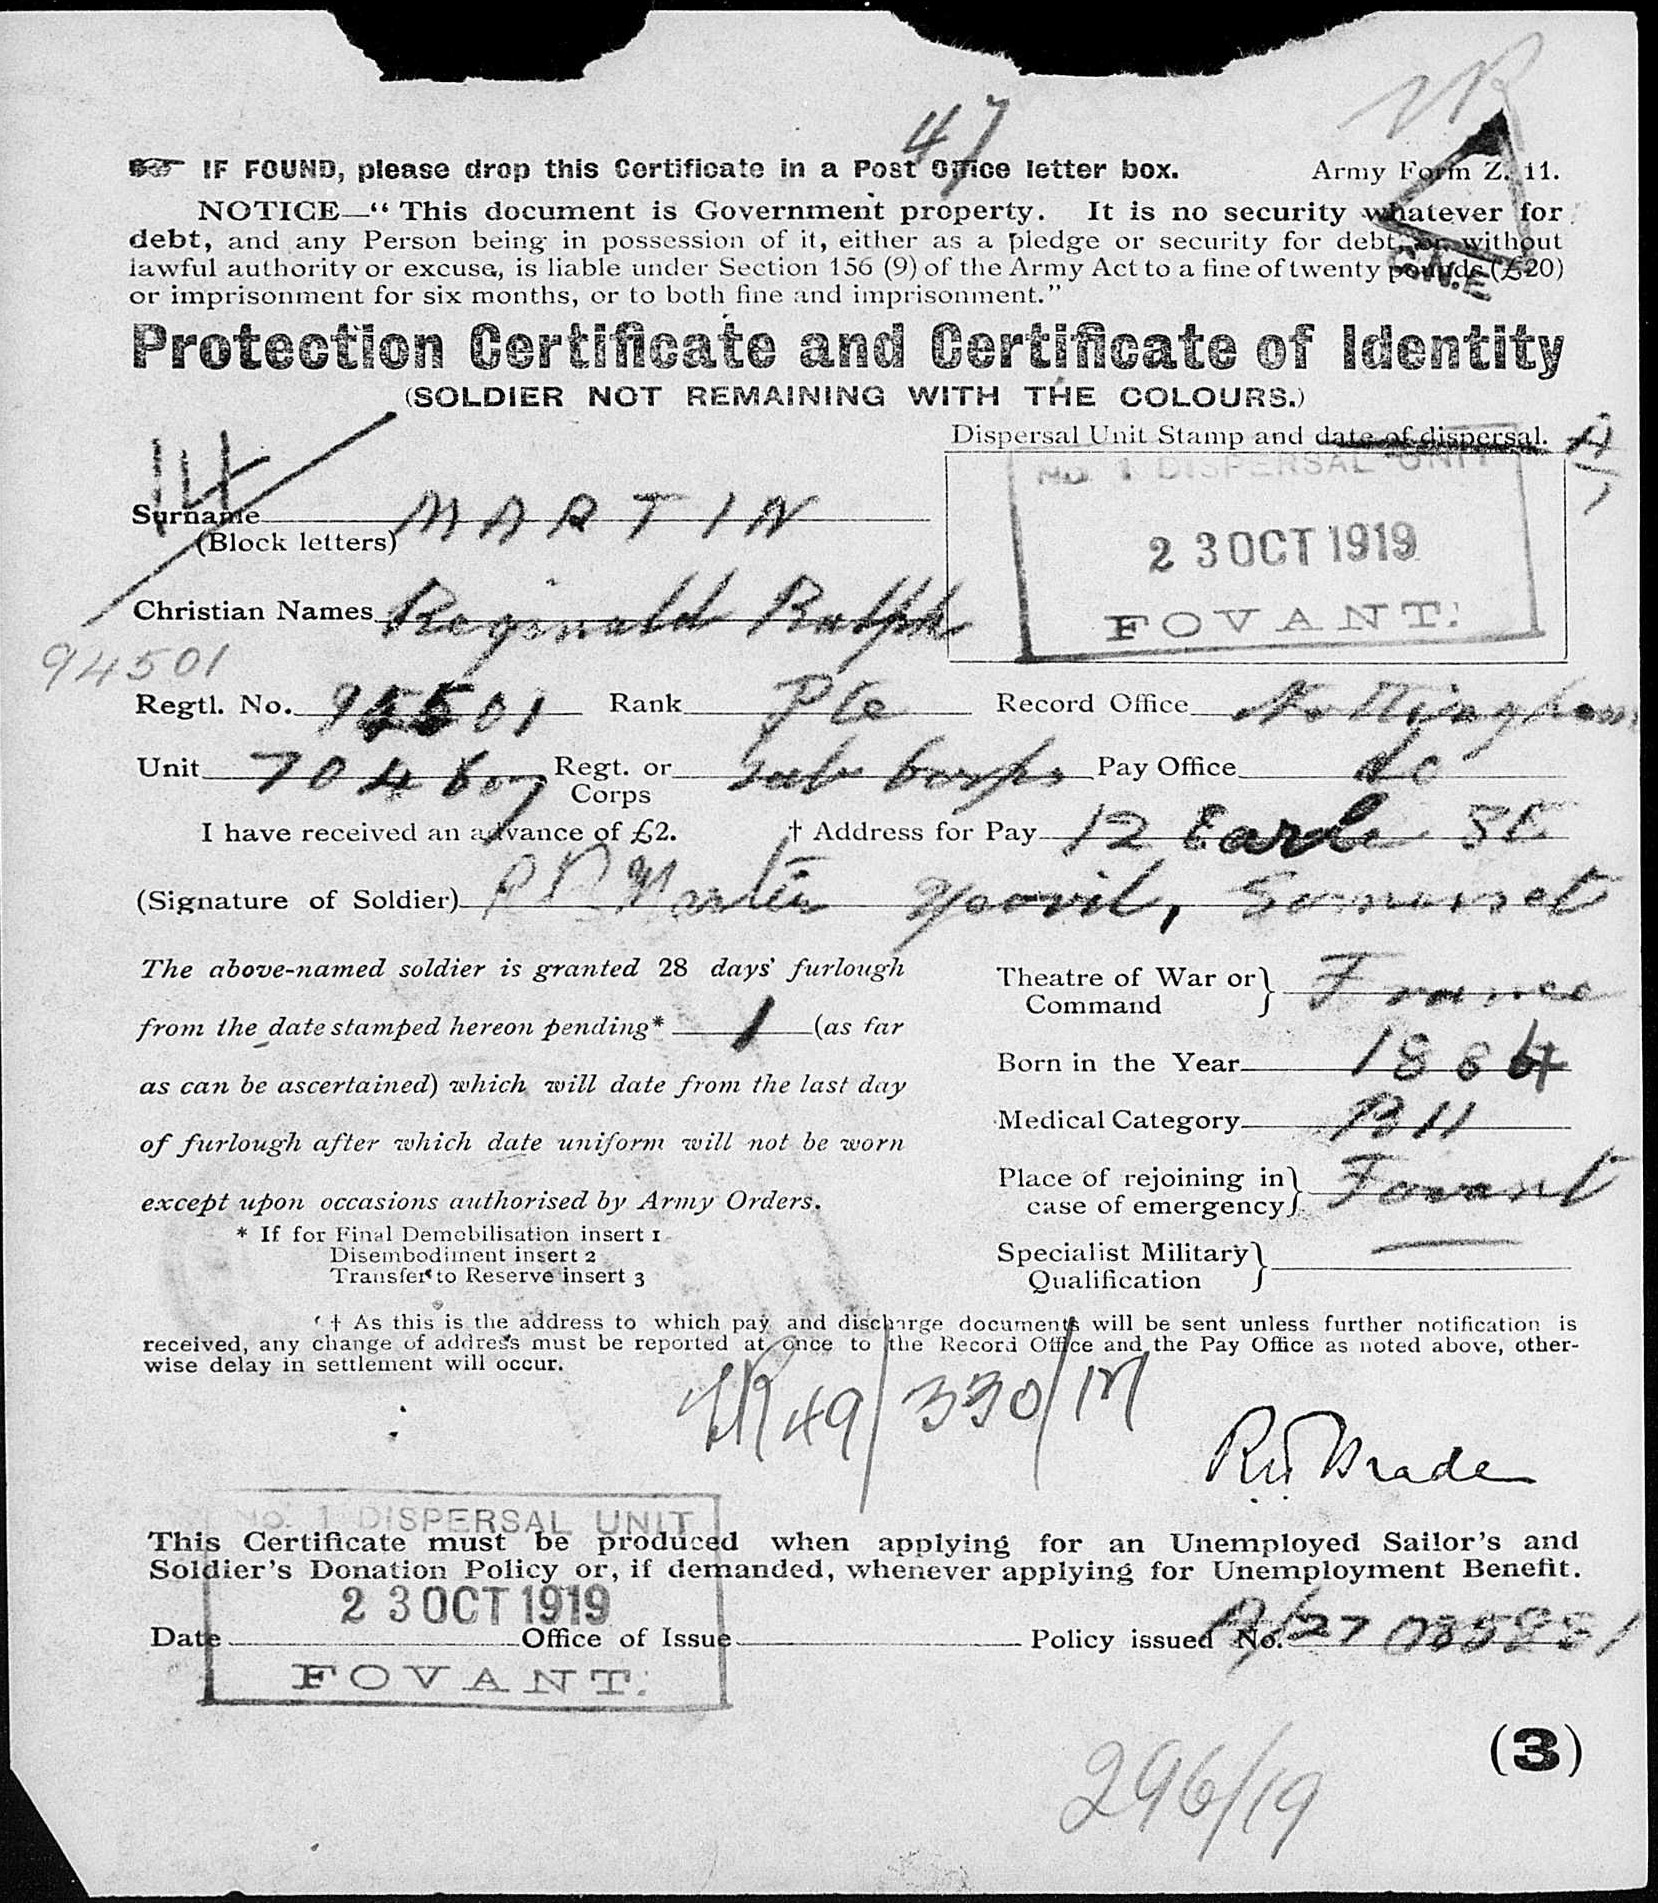 47
VR
IF FOUND, please drop this Certificate in a Post Office letter box. Army Form Z. 11.
NOTICE—“ This document is Government property. It is no security whatever for
debt, and any Person being in possession of it, either as a pledge or security for debt, or without
lawful authority or excuse, is liable under Section 156 (9) of the Army Act to a fine of twenty pounds (£20)
or imprisonment for six months, or to both fine and imprisonment.”
G.N.E
Protection Certificate and Certificate of Identity
(SOLDIER NOT REMAINING WITH THE COLOURS.)
Dispersal Unit Stamp and date of dispersal.
No. 1 DISPERSAL UNIT
23 OCT 1919
FOVANT.
14
Surname MARTIN
(Block letters)
Christian Names Reginald Ralph
94501
Regtl. No. 94501 Rank Pte Record Office Nottingham
Unit 704 Coy Regt. or Corps Lab Corps Pay Office do
I have received an advance of £2. † Address for Pay 12 Earle St
(Signature of Soldier) R R Martin Yeovil, Somerset
The above-named soldier is granted 28 days' furlough
from the date stamped hereon pending* 1 (as far
as can be ascertained) which will date from the last day
of furlough after which date uniform will not be worn
except upon occasions authorised by Army Orders.
* If for Final Demobilisation insert 1
Disembodiment insert 2
Transfer to Reserve insert 3
Theatre of War or Command } France
Born in the Year 1884
Medical Category B11
Place of rejoining in case of emergency } Fovant
Specialist Military Qualification } —
† As this is the address to which pay and discharge documents will be sent unless further notification is
received, any change of address must be reported at once to the Record Office and the Pay Office as noted above, other-
wise delay in settlement will occur.
49/330/M
No. 1 DISPERSAL UNIT
This Certificate must be produced when applying for an Unemployed Sailor's and
Soldier's Donation Policy or, if demanded, whenever applying for Unemployment Benefit.
23 OCT 1919
Date Office of Issue Policy issued No.
FOVANT.
(3)
296/19